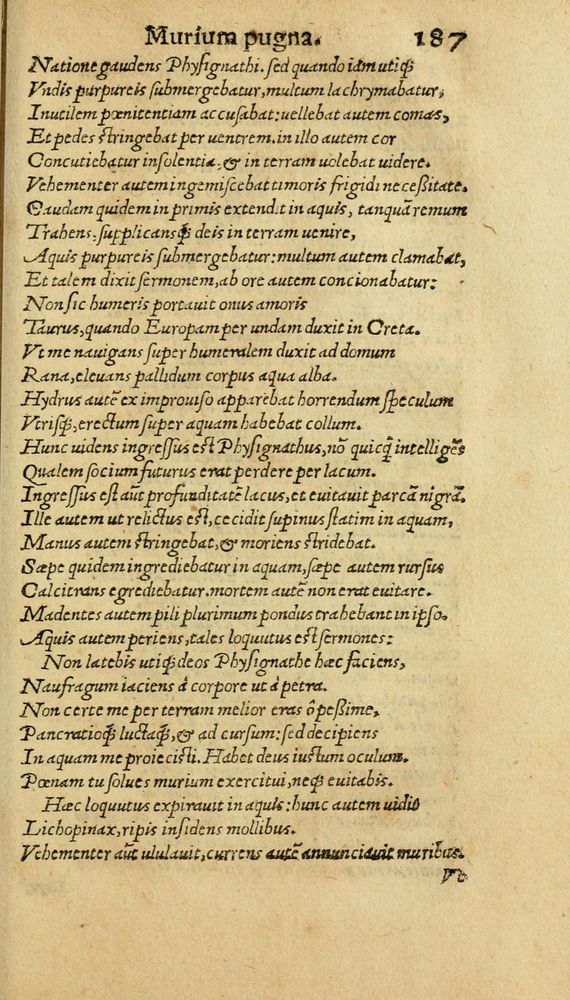 Murium pugna. 187
Natione gaudens Physignathi. sed quando iam utiq́;
Vndis purpureis submergebatur, multum lachrymabatur,
Inutilem pœnitentiam accusabat: uellebat autem comas,
Et pedes stringebat per uentrem. in illo autem cor
Concutiebatur insolentia. & in terram uolebat uidere.
Vehementer autem ingemiscebat timoris frigidi neceßitate.
Caudam quidem in primis extendit in aquis, tanquã remum
Trahens. supplicansq́; deis in terram uenire,
Aquis purpureis submergebatur: multum autem clamabat,
Et talem dixit sermonem, ab ore autem concionabatur:
Non sic humeris portauit onus amoris
Taurus, quando Europam per undam duxit in Creta.
Vt me nauigans super humeralem duxit ad domum
Rana, eleuans pallidum corpus aqua alba.
Hydrus autẽ ex improuiso apparebat horrendum speculum
Vtrisq́;, erectum super aquam habebat collum.
Hunc uidens ingressus est Physignathus, nõ quicq̃ intelligẽs
Qualem socium futurus erat perdere per lacum.
Ingressus est aũt profunditatẽ lacus, et euitauit parcã nigrã.
Ille autem ut relictus est, cecidit supinus statim in aquam,
Manus autem stringebat, & moriens stridebat.
Sæpe quidem ingrediebatur in aquam, sæpe autem rursus
Calcitrans egrediebatur. mortem autẽ non erat euitare.
Madentes autem pili plurimum pondus trahebant in ipso.
Aquis autem periens, tales loquutus est sermones:
Non latebis utiq́; deos Physignathe hæc faciens,
Naufragum iaciens à corpore ut à petra.
Non certe me per terram melior eras ô peßime,
Pancratioq́; luctaq́;, & ad cursum: sed decipiens
In aquam me proiecisti. Habet deus iustum oculum.
Pœnam tu solues murium exercitui, neq́; euitabis.
Hæc loquutus expirauit in aquis: hunc autem uidit
Lichopinax, ripis insidens mollibus.
Vehementer aũt ululauit, currens autẽ annunciauit muribus.